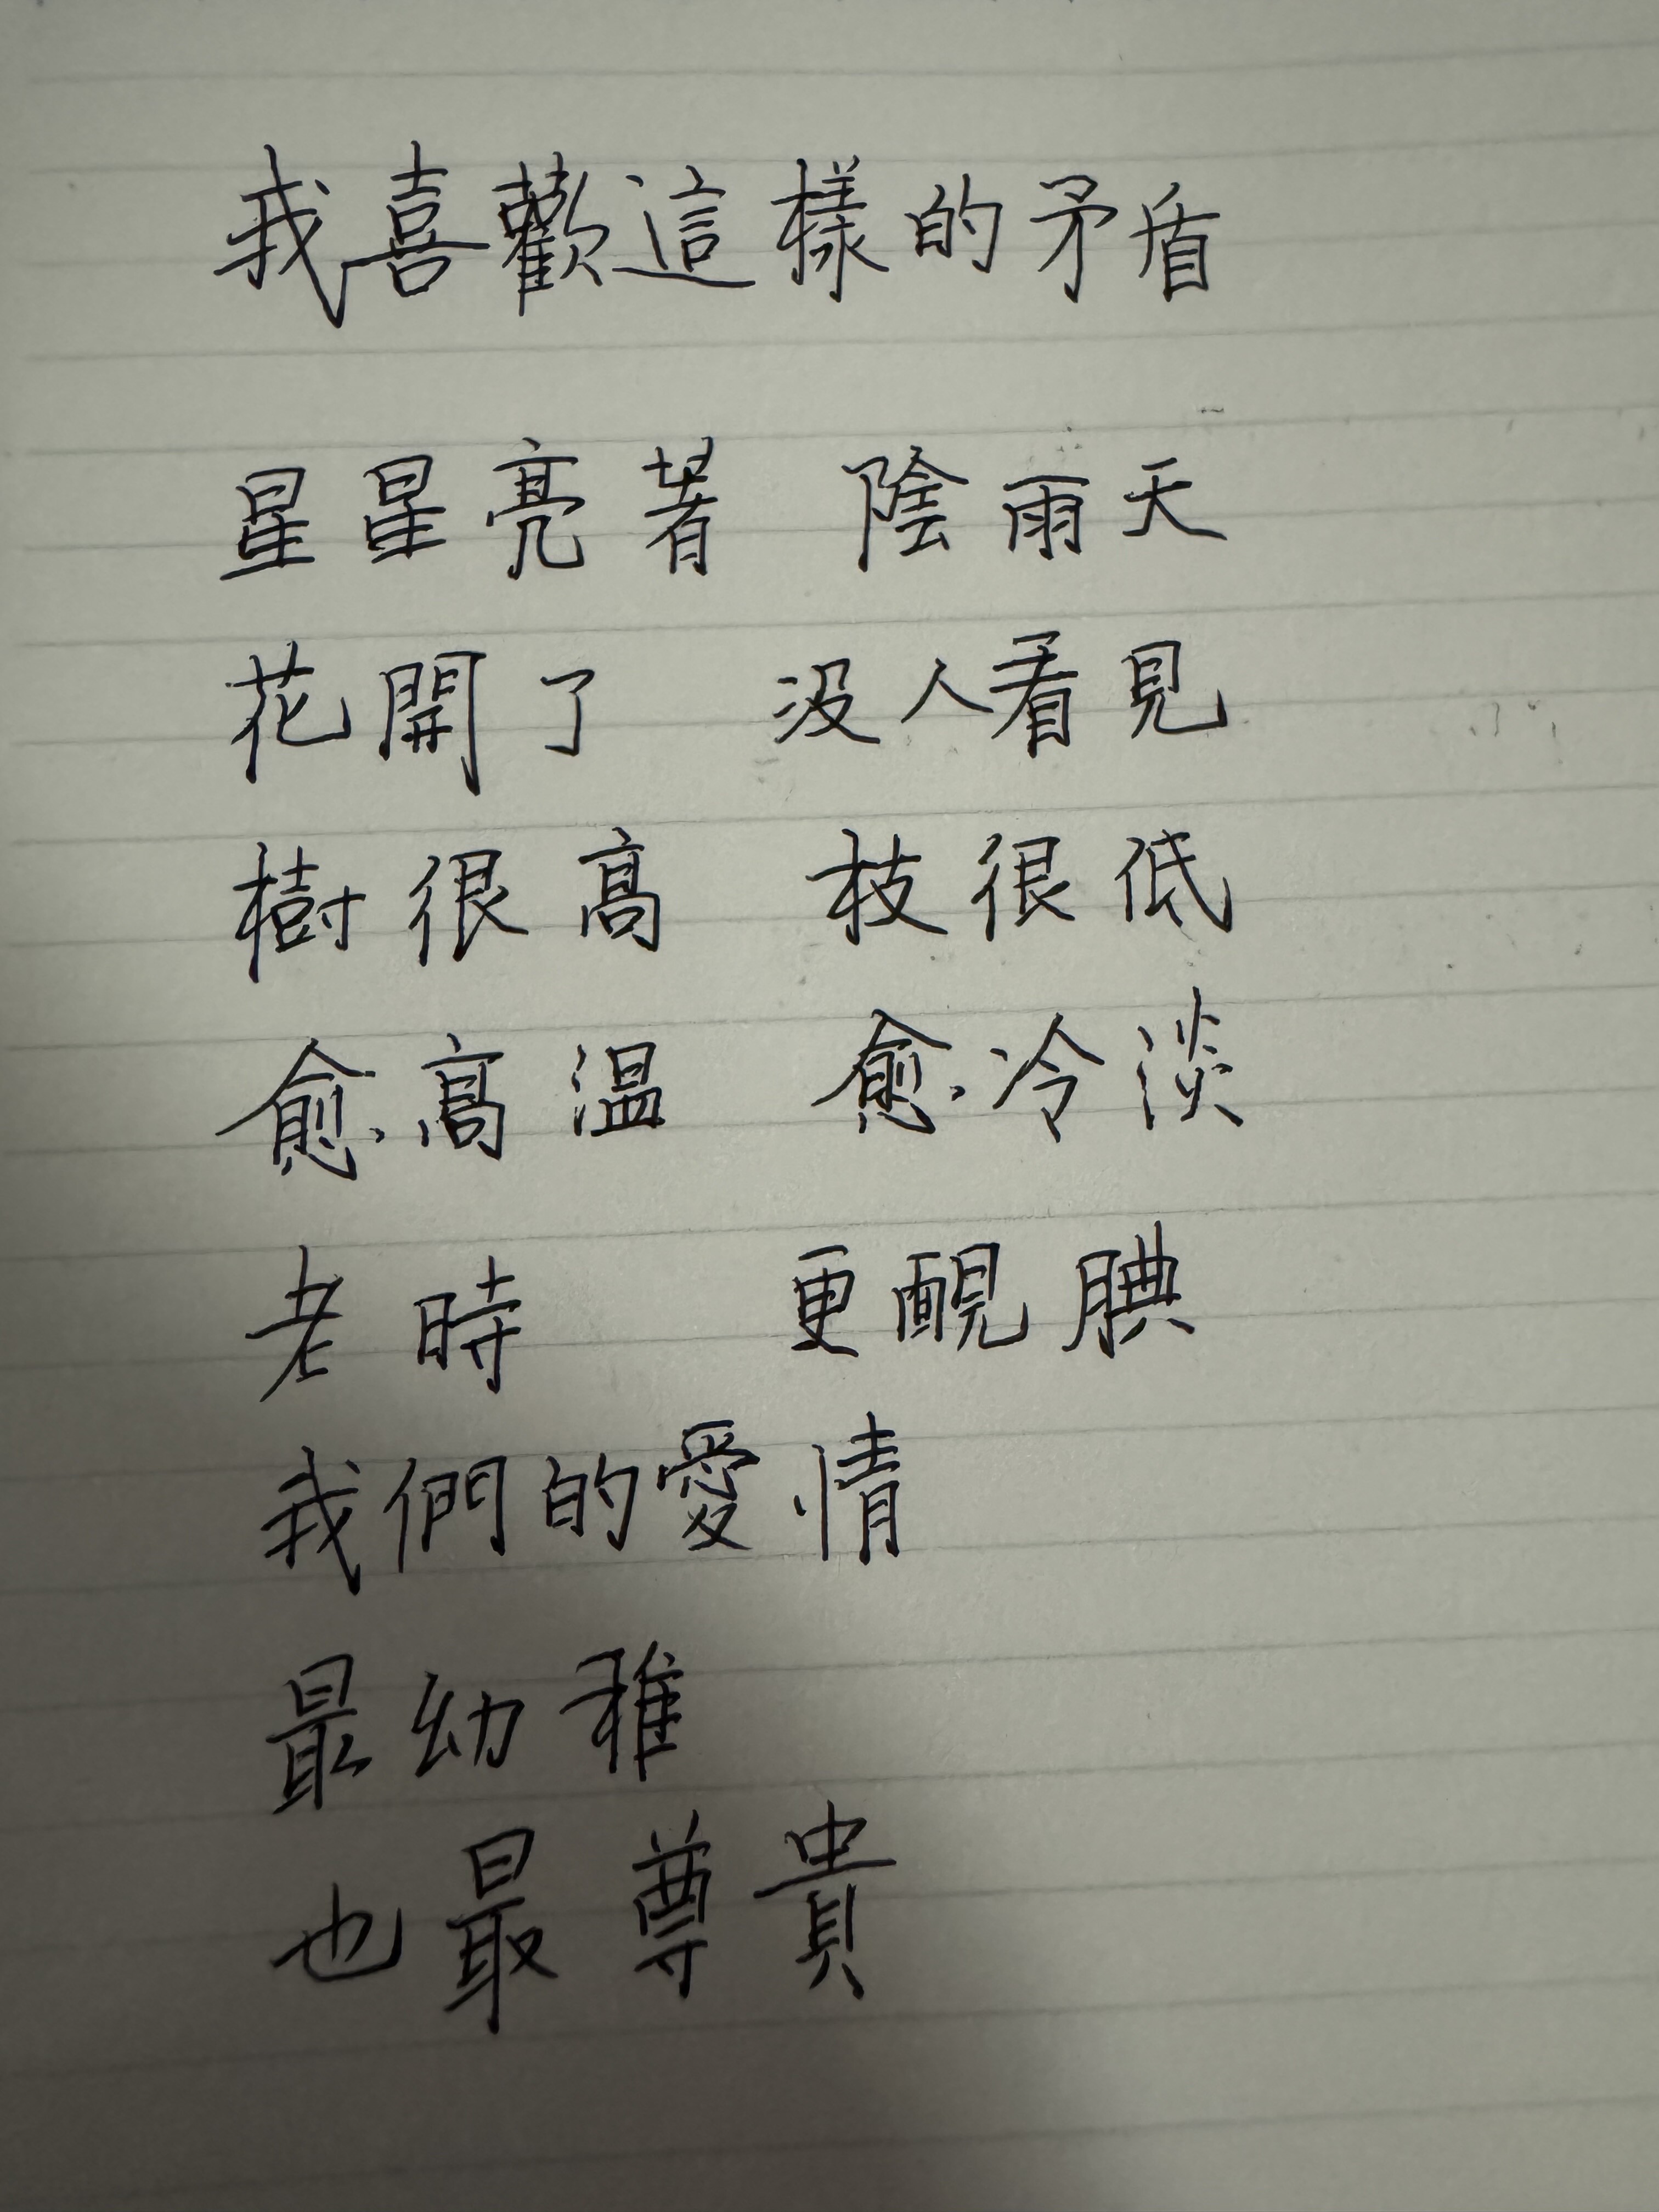 我喜歡這樣的矛盾
星星亮著 陰雨天
花開了 沒人看見
樹很高 枝很低
愈高溫 愈冷淡
老時 更靦腆
我們的愛情
最幼稚
也最尊貴